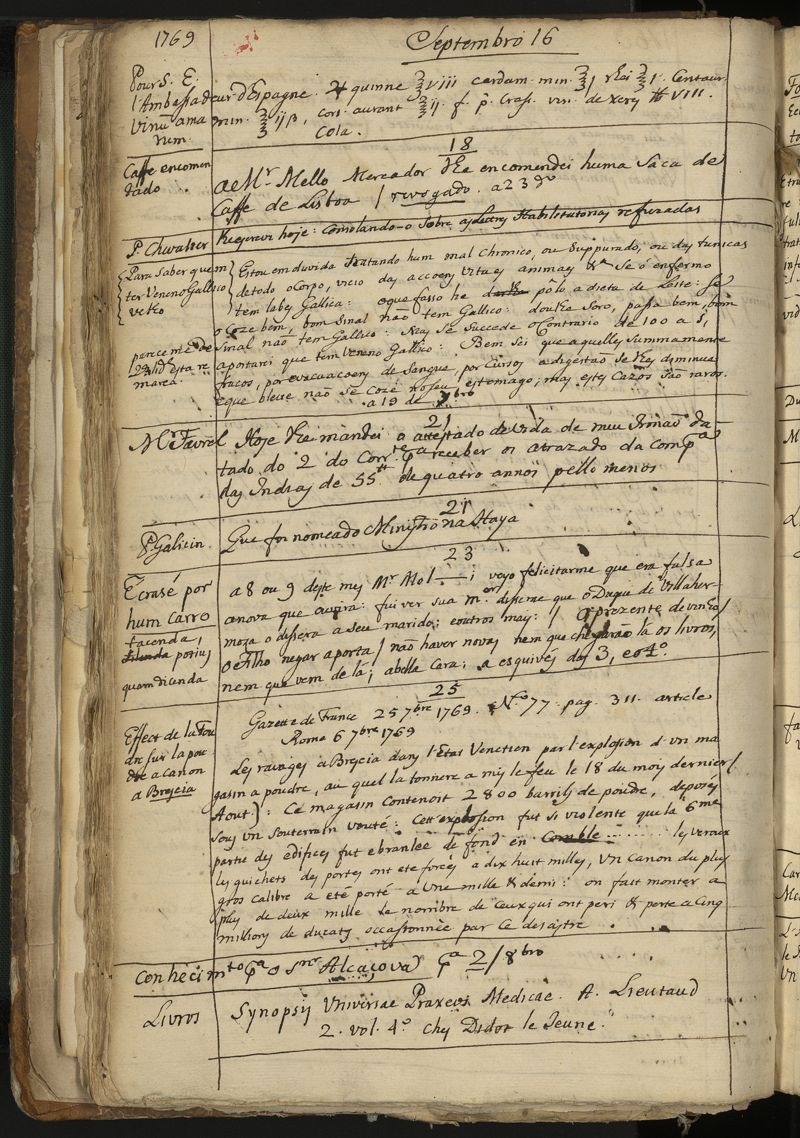 1769
Septembro 16
Pour S. E.
l'Ambassadeur d'Espagne. quinne ʒ VIII cardam. min. ʒ rhei ʒ Centaur.
Vinũ ama min. ʒ ijβ, cort. aurant ʒ ij. f. p. Crass. vin. de xery ℔ VIII.
rum.
Cola.
18
Caffe encomen
dado
a Mr. Mello Mercador lhe encomendei huma Saca de
Caffe de Lisboa / revogado. a 23 do
Pr. Chevalier Rescrevi hoje: Consolando-o sobre as Lettras Habilitatorias refuzadas
Para saber quem
tem Veneno Gallico
ve lho
Estou em duvida tratando hum mal chronico, ou suppurado, ou das tunicas
de todo o Corpo, vicio das accoens vitaes animaes &a se o enfermo
tem labes Gallica: o que fasso he pólo a dieta de Leite: se
o Coze bem, bom sinal não tem Gallico: dou lhe Soro, passa bem, bom
parece me de
Sinal não tem Gallico: Mas se succede o Contrario de 100 a 1,
esta re
marca.
apontarei que tem Veneno Gallico: Bem sei que aquelles summamente
fracos, por evacuacoens de Sangue, por Cursos a digestaõ se lhes diminue
e que bleve não se Coze no seu estomago; mas estes Cazos são raros.
a 19 de 7bro
21
Mr. Favrel Hoje lhe mandei o attestado de vida de meu Irmaõ da
tado do 2 do Corrte. pa receber os atrazado da Compa
das Indias de 55 de quatro annos pello menos
21
P. Galicin. Que foi nomeado Ministro na Haya
23
Ecrasé por
hum Carro
tacenda,
potius
quam dicenda
a 8 ou 9 deste mes Mr. Mol - i veyo felicitarme que era falsa
a nova que ouvira: fui ver sua mer disseme que o Duque de Villaher
moza o dissera a seu marido; e outros mas: / O prezente de vinho/
o e lho negar a porta / não haver novas nem que chegaraõ lá os livros,
nem que vem de lá; abella Cara; a esquivés dos 3, e o 4o.
25
Effect de la Fou
dre sur la pou
dre a canon
a Brescia
Gazette de France 25 7bre 1769. No. 77. pag. 311. article
Rome 6 7bre 1769
Les ravages à Brescia dans l'Etat Venetien par l'explosion d'un ma
gasin a poudre, au quel la tonnere a mis le feu le 18 du mois dernier/
Aout): Ce magasin Contenoit 2800 barrils de poudre, deposés
sous un souterrain vouté: Cette explosion fut si violente que la 6me
partie des edifices fut ebranlée de fond en Comble ........ les veroux
les guichets des portes ont ete forcés a dix huit milles, Un Canon du plus
gros Calibre a eté porté a Une mille & demi: on fait monter a
plus de deux mille le nombre de Ceux qui ont peri & perte a Cinq
millions de ducats occassionnée par ce desastre
Conhecimto pa o snr Alcaçova pa 2/8bro
Livros
Synopsis Universae Praxeos Medicae. A. Lieutaud
2. vol. 4o chez Didot le Jeune.